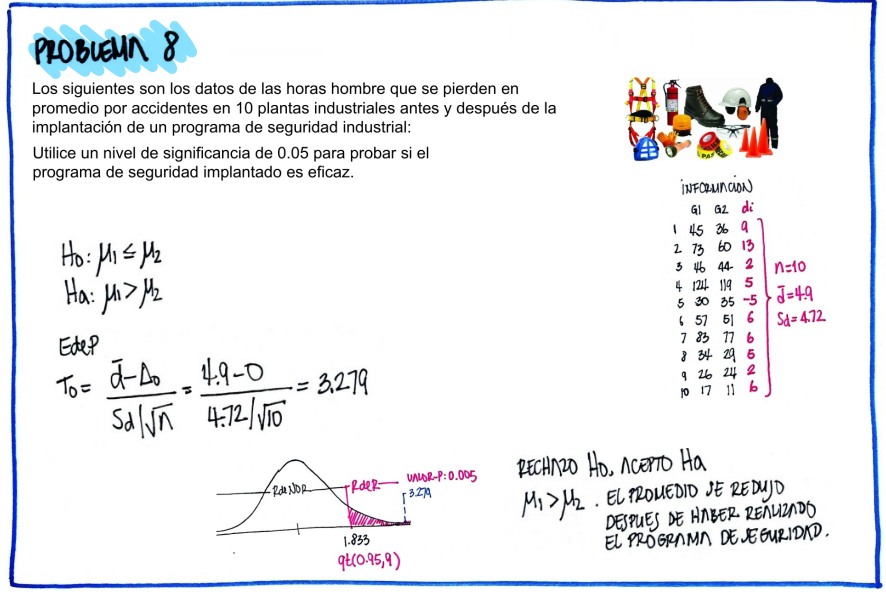 PROBLEMA 8
Los siguientes son los datos de las horas hombre que se pierden en
promedio por accidentes en 10 plantas industriales antes y después de la
implantación de un programa de seguridad industrial:
Utilice un nivel de significancia de 0.05 para probar si el
programa de seguridad implantado es eficaz.
INFORMACIÓN
G1 G2 di
1 45 36 9
2 73 60 13
3 46 44 2
4 124 119 5
5 30 35 -5
6 57 51 6
7 83 77 6
8 34 29 5
9 26 24 2
10 17 11 6
n=10
d̄=4.9
Sd=4.72
Ho: μ1 ≤ μ2
Ha: μ1 > μ2
EdeP
To = d̄-Δo / Sd/√n = 4.9-0 / 4.72/√10 = 3.279
RdeNoR
RdeR
VALOR-P: 0.005
3.279
1.833
qt(0.95,9)
RECHAZO Ho, ACEPTO Ha
μ1 > μ2. EL PROMEDIO SE REDUJO
DESPUES DE HABER REALIZADO
EL PROGRAMA DE SEGURIDAD.